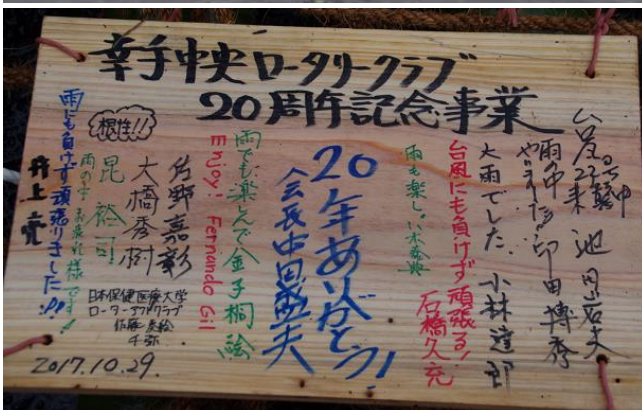 幸手中央ロータリークラブ
20周年記念事業
台風襲来 池田岩夫
雨の中
やりました!! 印田博秀
大雨でした 小林達郎
台風にも負けず頑張る!
石橋久充
雨も楽しい
20年ありがとう!
会長 中田
雨でも楽しんで 金子桐絵
Enjoy! Fernando Gil
佐野嘉彰
大橋秀樹
根性!!
昆裕司
雨の中お疲れ様です!
雨にも負けず頑張りました!!
井上
日本保健医療大学
ローターアクトクラブ
佐藤
千弥
2017.10.29.